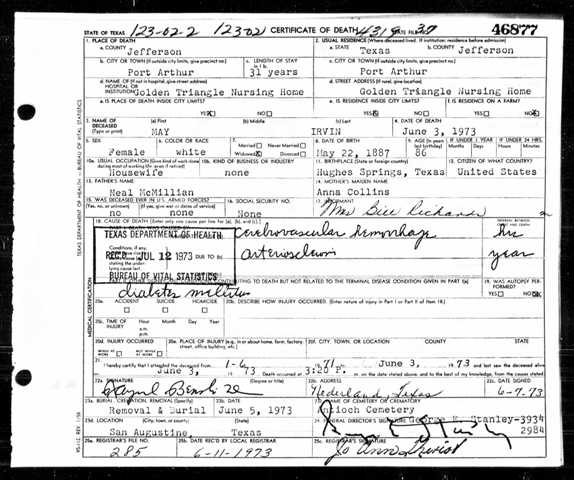 STATE OF TEXAS 123-02-2 12302 CERTIFICATE OF DEATH 46877
1. PLACE OF DEATH 2. USUAL RESIDENCE (Where deceased lived. If institution: residence before admission)
a. COUNTY Jefferson a. STATE Texas b. COUNTY Jefferson
b. CITY OR TOWN (If outside city limits, give precinct no.) c. LENGTH OF STAY c. CITY OR TOWN (If outside city limits, give precinct no.)
Port Arthur 31 years Port Arthur
d. NAME OF (If not in hospital, give street address) d. STREET ADDRESS (If rural, give location)
HOSPITAL OR INSTITUTION Golden Triangle Nursing Home Golden Triangle Nursing Home
e. IS PLACE OF DEATH INSIDE CITY LIMITS? e. IS RESIDENCE INSIDE CITY LIMITS? f. IS RESIDENCE ON A FARM?
YES X NO YES X NO YES NO X
3. NAME OF DECEASED (Type or print) (a) First (b) Middle (c) Last 4. DATE OF DEATH
MAY IRVIN June 3, 1973
5. SEX 6. COLOR OR RACE 7. Married Never Married Widowed Divorced 8. DATE OF BIRTH 9. AGE (In years last birthday) IF UNDER 1 YEAR IF UNDER 24 HRS.
Months Days Hours Min.
Female white May 22, 1887 86
10a. USUAL OCCUPATION (Give kind of work done during most of working life, even if retired) 10b. KIND OF BUSINESS OR INDUSTRY 11. BIRTHPLACE (State or foreign country) 12. CITIZEN OF WHAT COUNTRY?
Housewife none Hughes Springs, Texas United States
13. FATHER'S NAME 14. MOTHER'S MAIDEN NAME
Neal McMillian Anna Collins
15. WAS DECEASED EVER IN U.S. ARMED FORCES? 16. SOCIAL SECURITY NO. 17. INFORMANT
(Yes, no, or unknown) (If yes, give war or dates of service)
no none None Mrs Bill Richards
18. CAUSE OF DEATH (Enter only one cause per line for (a), (b), and (c).)
TEXAS DEPARTMENT OF HEALTH
REC'D JUL 12 1973
BUREAU OF VITAL STATISTICS
Cerebrovascular hemorrhage
DUE TO (b)
DUE TO (c)
year
CONTRIBUTING TO DEATH BUT NOT RELATED TO THE TERMINAL DISEASE CONDITION GIVEN IN PART I(a) 19. WAS AUTOPSY PERFORMED?
diabetes mellitus YES NO X
20a. ACCIDENT SUICIDE HOMICIDE 20b. DESCRIBE HOW INJURY OCCURRED. (Enter nature of injury in Part I or Part II of Item 18.)
20c. TIME OF INJURY Hour Month Day Year
a.m.
p.m.
20d. INJURY OCCURRED 20e. PLACE OF INJURY (e.g., in or about home, farm, factory, street, office building, etc.) 20f. CITY, TOWN, OR LOCATION COUNTY STATE
WHILE AT WORK NOT WHILE AT WORK
21. I hereby certify that I attended the deceased from 1-6 71 June 3, 73 and last saw the deceased alive
June 3, 73 Death occurred at 3:20 P. m. on the date stated above, and to the best of my knowledge, from the causes stated
22a. SIGNATURE (Degree or title) 22b. ADDRESS 22c. DATE SIGNED
Nederland Texas 6-7-73
23a. BURIAL, CREMATION, REMOVAL (Specify) 23b. DATE 23c. NAME OF CEMETERY OR CREMATORY
Removal & Burial June 5, 1973 Antioch Cemetery
23d. LOCATION (City, town, or county) (State) 24. FUNERAL DIRECTOR'S SIGNATURE
George E. Stanley-3934
San Augustine, Texas 2984
25a. REGISTRAR'S FILE NO. 25b. DATE REC'D BY LOCAL REGISTRAR 25c. REGISTRAR'S SIGNATURE
285 6-11-1973
TEXAS DEPARTMENT OF HEALTH — BUREAU OF VITAL STATISTICS
MEDICAL CERTIFICATION